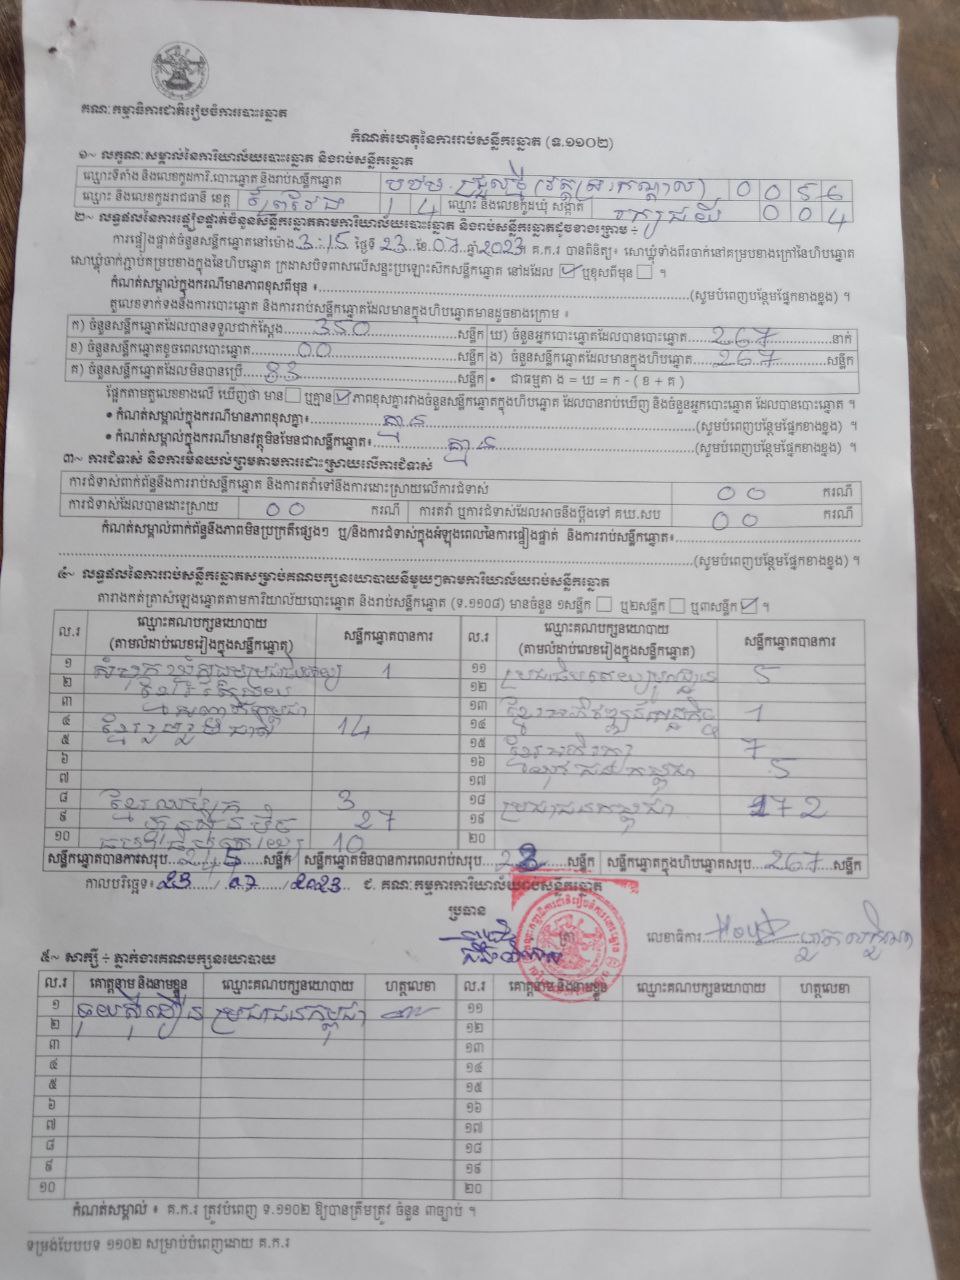 គណៈកម្មាធិការជាតិរៀបចំការបោះឆ្នោត
កំណត់ហេតុនៃការរាប់សន្លឹកឆ្នោត (ទ.១១០២)
១~ លក្ខណៈសម្គាល់នៃការិយាល័យបោះឆ្នោត និងរាប់សន្លឹកឆ្នោត
ឈ្មោះទីតាំង និងលេខកូដការិ.បោះឆ្នោត និងរាប់សន្លឹកឆ្នោត 0 0 5 6
ឈ្មោះ និងលេខកូដរាជធានី ខេត្ត ព្រៃវែង 1 4 ឈ្មោះ និងលេខកូដឃុំ សង្កាត់ 0 0 4
២~ លទ្ធផលនៃការផ្ទៀងផ្ទាត់ចំនួនសន្លឹកឆ្នោតតាមការិយាល័យបោះឆ្នោត និងរាប់សន្លឹកឆ្នោតដូចខាងក្រោម ÷
ការផ្ទៀងផ្ទាត់ចំនួនសន្លឹកឆ្នោតនៅម៉ោង 3:15 ថ្ងៃទី 23 ខែ 07 ឆ្នាំ 2023 គ.ក.រ បានពិនិត្យ៖ សោឃ្លុំទាំងពីរចាក់នៅគម្របខាងក្រៅនៃហិបឆ្នោត
សោឃ្លុំចាក់ភ្ជាប់គម្របខាងក្នុងនៃហិបឆ្នោត ក្រដាសបិទពាសលើសន្ទះប្រឡោះស៊កសន្លឹកឆ្នោត នៅដដែល ☑ ឬខុសពីមុន ☐ ។
កំណត់សម្គាល់ក្នុងករណីមានភាពខុសពីមុន ៖ (សូមបំពេញបន្ថែមផ្នែកខាងខ្នង) ។
តួលេខទាក់ទងនឹងការបោះឆ្នោត និងការរាប់សន្លឹកឆ្នោតដែលមានក្នុងហិបឆ្នោតមានដូចខាងក្រោម ៖
ក) ចំនួនសន្លឹកឆ្នោតដែលបានទទួលជាក់ស្តែង 350 សន្លឹក ឃ) ចំនួនអ្នកបោះឆ្នោតដែលបានបោះឆ្នោត 267 នាក់
ខ) ចំនួនសន្លឹកឆ្នោតខូចពេលបោះឆ្នោត 00 សន្លឹក ង) ចំនួនសន្លឹកឆ្នោតដែលមានក្នុងហិបឆ្នោត 267 សន្លឹក
គ) ចំនួនសន្លឹកឆ្នោតដែលមិនបានប្រើ 83 សន្លឹក • ជាធម្មតា ង = ឃ = ក - ( ខ + គ )
ផ្អែកតាមតួលេខខាងលើ ឃើញថា មាន ☐ ឬគ្មាន ☑ ភាពខុសគ្នារវាងចំនួនសន្លឹកឆ្នោតក្នុងហិបឆ្នោត ដែលបានរាប់ឃើញ និងចំនួនអ្នកបោះឆ្នោត ដែលបានបោះឆ្នោត ។
• កំណត់សម្គាល់ក្នុងករណីមានភាពខុសគ្នា៖ គ្មាន (សូមបំពេញបន្ថែមផ្នែកខាងខ្នង) ។
• កំណត់សម្គាល់ក្នុងករណីមានវត្ថុមិនមែនជាសន្លឹកឆ្នោត៖ គ្មាន (សូមបំពេញបន្ថែមផ្នែកខាងខ្នង) ។
៣~ ការជំទាស់ និងការមិនយល់ព្រមតាមការដោះស្រាយលើការជំទាស់
ការជំទាស់ពាក់ព័ន្ធនឹងការរាប់សន្លឹកឆ្នោត និងការតវ៉ាទៅនឹងការដោះស្រាយលើការជំទាស់ 00 ករណី
ការជំទាស់ដែលបានដោះស្រាយ 00 ករណី ការតវ៉ា ឬការជំទាស់ដែលអាចនឹងប្តឹងទៅ គឃ.សប 00 ករណី
កំណត់សម្គាល់ពាក់ព័ន្ធនឹងភាពមិនប្រក្រតីផ្សេងៗ ឬ/និងការជំទាស់ក្នុងអំឡុងពេលនៃការផ្ទៀងផ្ទាត់ និងការរាប់សន្លឹកឆ្នោត៖
(សូមបំពេញបន្ថែមផ្នែកខាងខ្នង) ។
៤~ លទ្ធផលនៃការរាប់សន្លឹកឆ្នោតសម្រាប់គណបក្សនយោបាយនីមួយៗតាមការិយាល័យរាប់សន្លឹកឆ្នោត
តារាងកត់ត្រាសំឡេងឆ្នោតតាមការិយាល័យបោះឆ្នោត និងរាប់សន្លឹកឆ្នោត (ទ.១១០៨) មានចំនួន ១សន្លឹក ☐ ឬ២សន្លឹក ☐ ឬ៣សន្លឹក ☑ ។
ល.រ ឈ្មោះគណបក្សនយោបាយ (តាមលំដាប់លេខរៀងក្នុងសន្លឹកឆ្នោត) សន្លឹកឆ្នោតបានការ ល.រ ឈ្មោះគណបក្សនយោបាយ (តាមលំដាប់លេខរៀងក្នុងសន្លឹកឆ្នោត) សន្លឹកឆ្នោតបានការ
១ 1 ១១ 5
២ ១២
៣ ១៣ 1
៤ ខ្មែររួបរួមជាតិ 14 ១៤
៥ ១៥ 7
៦ ១៦ 5
៧ ១៧
៨ 3 ១៨ ប្រជាជនកម្ពុជា 172
៩ ហ៊្វុនស៊ិនប៉ិច 27 ១៩
១០ 10 ២០
សន្លឹកឆ្នោតបានការសរុប 245 សន្លឹក សន្លឹកឆ្នោតមិនបានការពេលរាប់សរុប 22 សន្លឹក សន្លឹកឆ្នោតក្នុងហិបឆ្នោតសរុប 267 សន្លឹក
កាលបរិច្ឆេទ៖ 23 / 07 / 2023 ជ. គណៈកម្មការការិយាល័យរាប់សន្លឹកឆ្នោត
ប្រធាន
ត្រា លេខាធិការ
៥~ សាក្សី ÷ ភ្នាក់ងារគណបក្សនយោបាយ
ល.រ គោត្តនាម និងនាមខ្លួន ឈ្មោះគណបក្សនយោបាយ ហត្ថលេខា ល.រ គោត្តនាម និងនាមខ្លួន ឈ្មោះគណបក្សនយោបាយ ហត្ថលេខា
១ ប្រជាជនកម្ពុជា ១១
២ ១២
៣ ១៣
៤ ១៤
៥ ១៥
៦ ១៦
៧ ១៧
៨ ១៨
៩ ១៩
១០ ២០
កំណត់សម្គាល់ ៖ គ.ក.រ ត្រូវបំពេញ ទ.១១០២ ឱ្យបានត្រឹមត្រូវ ចំនួន ៣ច្បាប់ ។
ទម្រង់បែបបទ ១១០២ សម្រាប់បំពេញដោយ គ.ក.រ